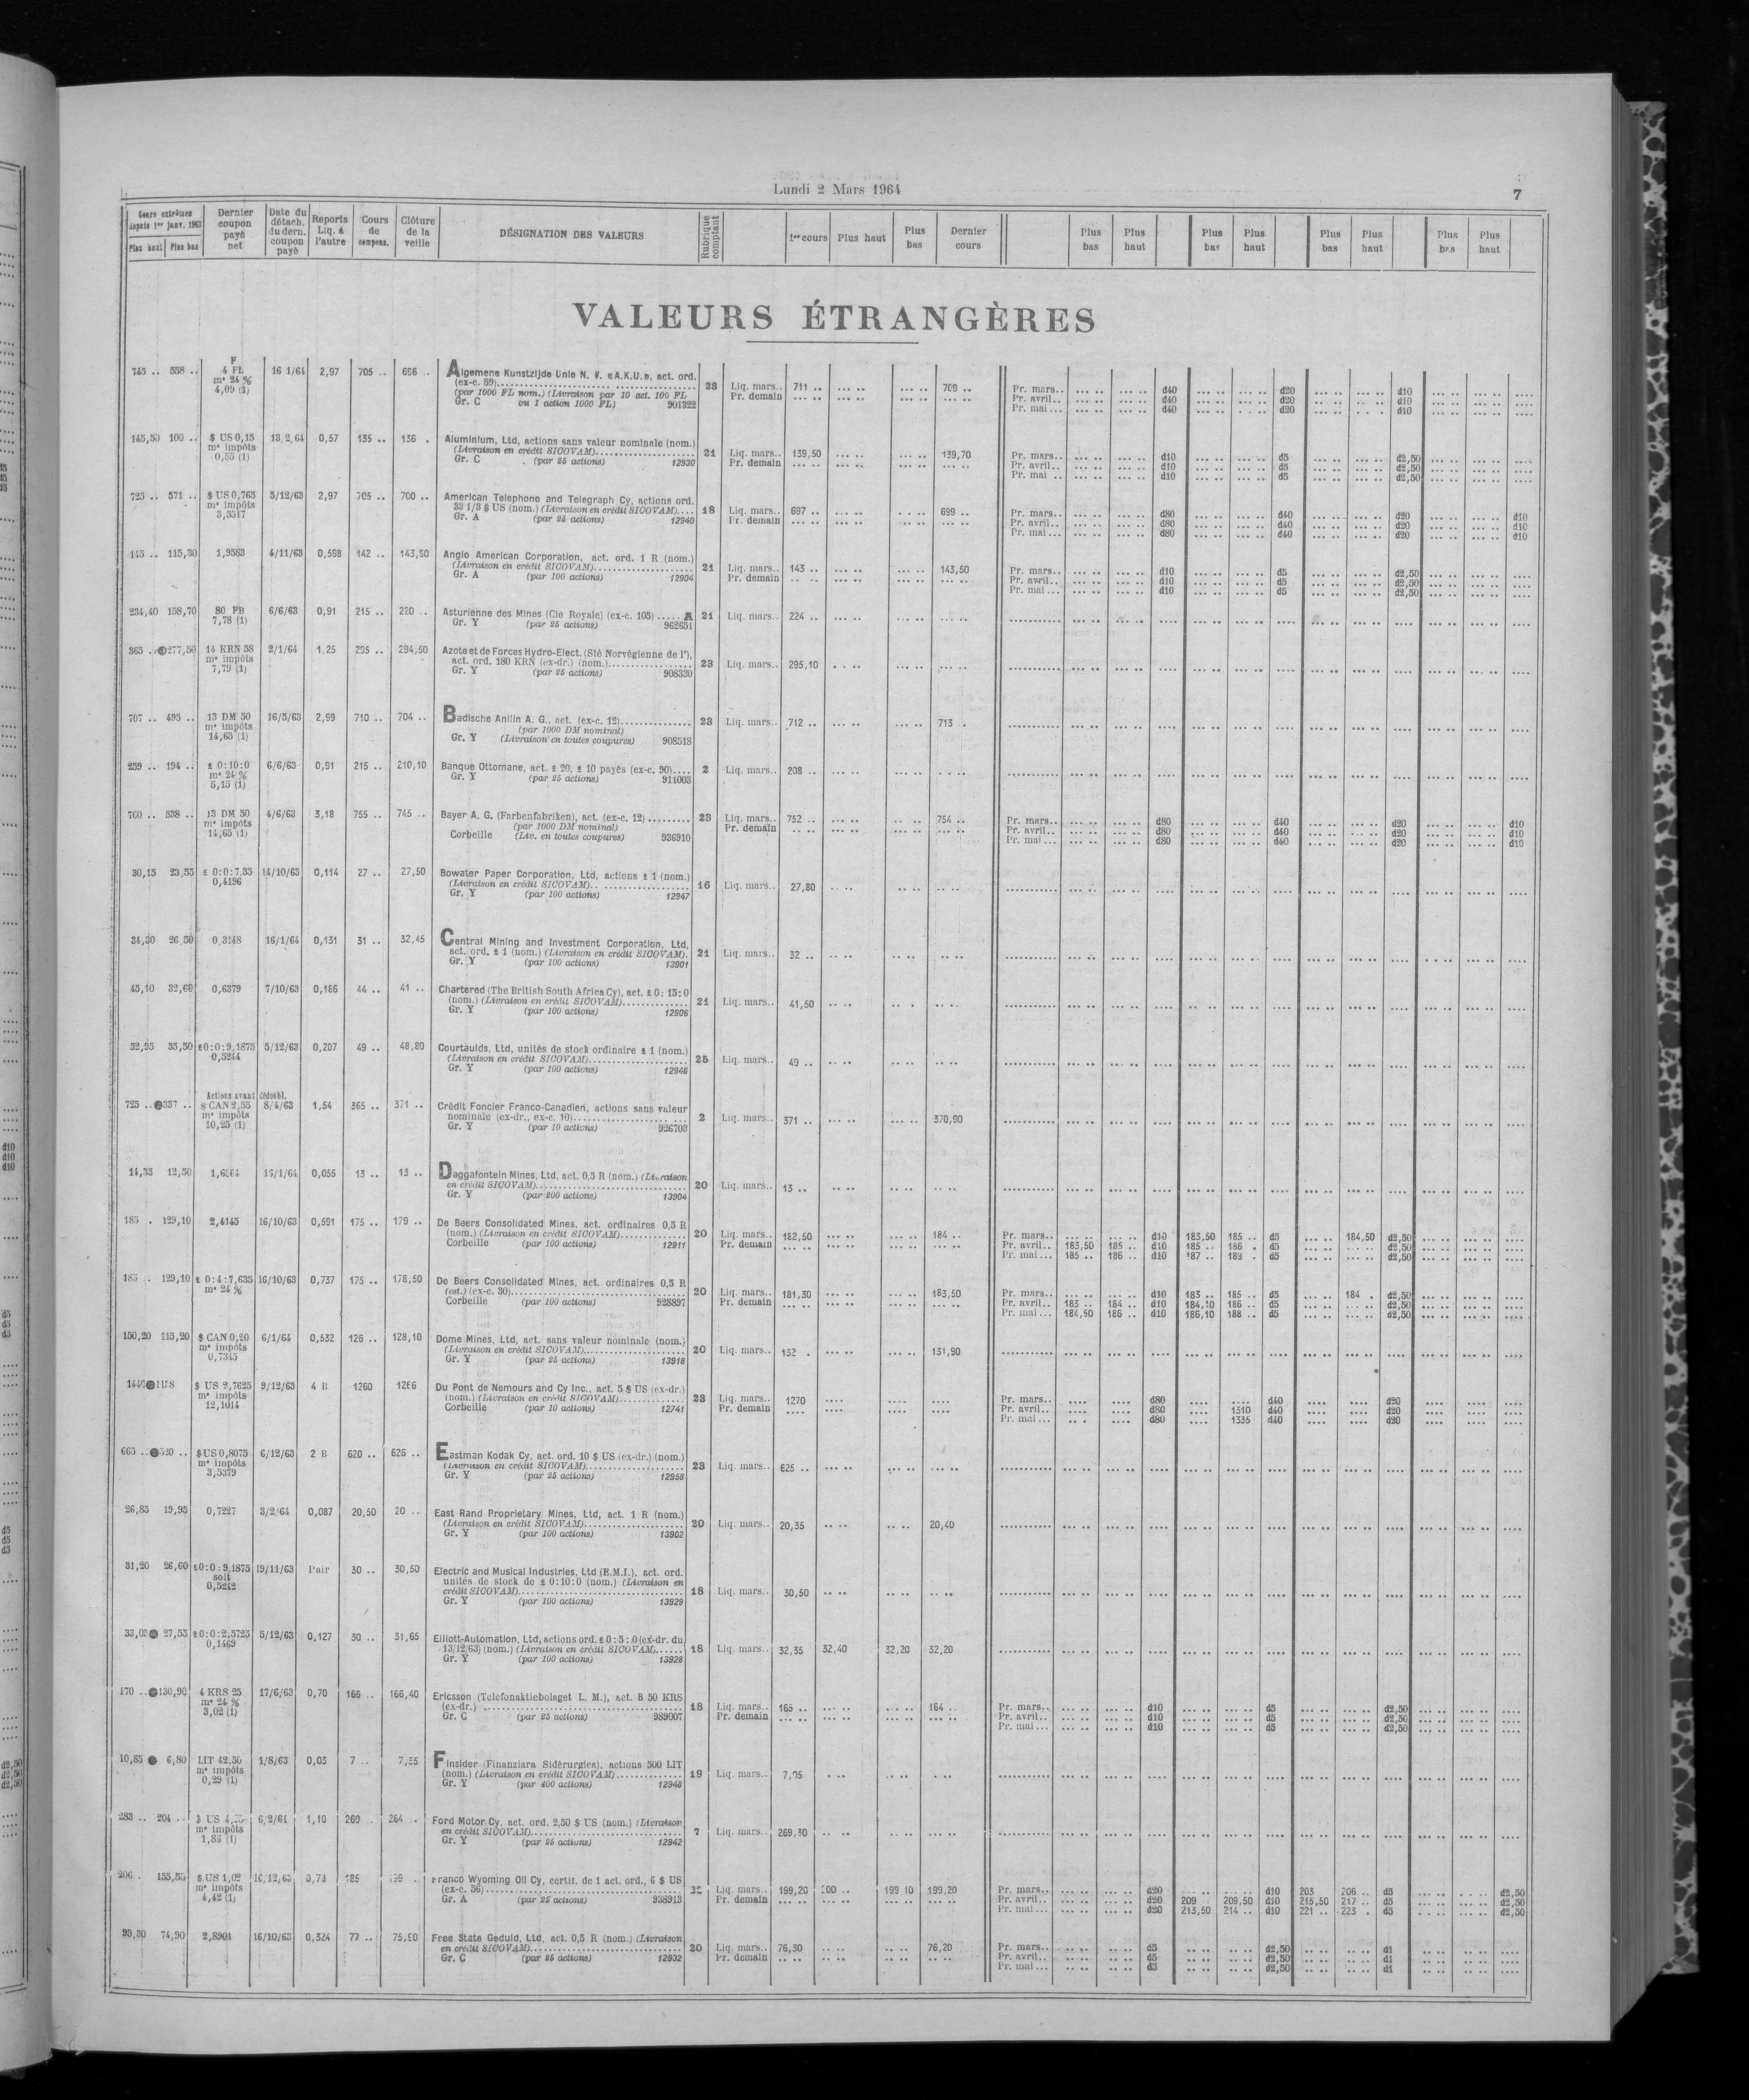 Lundi 2 Mars 1964
7
Cours extrêmes depuis 1er janv. 1963
Plus haut Plus bas
Dernier coupon payé net
Date du détach. du dern. coupon payé
Reports Liq. à l'autre
Cours de compens.
Clôture de la veille
DÉSIGNATION DES VALEURS
Rubrique comptant
1er cours Plus haut Plus bas Dernier cours
Plus bas Plus haut Plus bas Plus haut Plus bas Plus haut Plus bas Plus haut
VALEURS ÉTRANGÈRES
745 .. 558 .. F 4 FL m* 24 % 4,09 (1) 16 1/64 2,97 705 .. 696 .. Algemene Kunstzijde Unie N. V. «A.K.U.», act. ord.
(ex-c. 59) 28 Liq. mars.. 711 .. 709 .. Pr. mars.. d40 d20 d10
(par 1000 FL nom.) (Livraison par 10 act. 100 FL Pr. demain Pr. avril.. d40 d20 d10
Gr. C ou 1 action 1000 FL) 901322 Pr. mai... d40 d20 d10
145,50 100 .. $ US 0,15 m* impôts 0,55 (1) 13,2,64 0,57 135 .. 136 . Aluminium, Ltd, actions sans valeur nominale (nom.)
(Livraison en crédit SICOVAM) 21 Liq. mars.. 139,50 139,70 Pr. mars.. d10 d5 d2,50
Gr. C (par 25 actions) 12930 Pr. demain Pr. avril.. d10 d5 d2,50
Pr. mai .. d10 d5 d2,50
725 .. 571 .. $ US 0,765 m* impôts 3,3517 5/12/63 2,97 705 .. 700 .. American Telephone and Telegraph Cy, actions ord.
33 1/3 $ US (nom.) (Livraison en crédit SICOVAM) 18 Liq. mars.. 697 .. 699 .. Pr. mars.. d80 d40 d20 d10
Gr. A (par 25 actions) 12940 Pr. demain Pr. avril.. d80 d40 d20 d10
Pr. mai ... d80 d40 d20 d10
145 .. 115,30 1,9583 4/11/63 0,598 142 .. 143,50 Anglo American Corporation, act. ord. 1 R (nom.)
(Livraison en crédit SICOVAM) 21 Liq. mars.. 143 .. 143,50 Pr. mars.. d10 d5 d2,50
Gr. A (par 100 actions) 12904 Pr. demain Pr. avril.. d10 d5 d2,50
Pr. mai ... d10 d5 d2,50
234,40 158,70 80 FB 7,78 (1) 6/6/63 0,91 215 .. 220 .. Asturienne des Mines (Cie Royale) (ex-c. 105) ..... A 21 Liq. mars.. 224 ..
Gr. Y (par 25 actions) 962651
365 .. 277,50 14 KRN 58 m* impôts 7,79 (1) 2/1/64 1,25 295 .. 294,50 Azote et de Forces Hydro-Elect. (Sté Norvégienne de l'),
act. ord. 180 KRN (ex-dr.) (nom.) 23 Liq. mars.. 295,10
Gr. Y (par 25 actions) 908330
707 .. 495 .. 13 DM 50 m* impôts 14,65 (1) 16/5/63 2,99 710 .. 704 .. Badische Anilin A. G., act. (ex-c. 12) 23 Liq. mars.. 712 .. 713 .
(par 1000 DM nominal)
Gr. Y (Livraison en toutes coupures) 908518
259 .. 194 .. £ 0:10:0 m* 24 % 5,15 (1) 6/6/63 0,91 215 .. 210,10 Banque Ottomane, act. £ 20, £ 10 payés (ex-c. 90) 2 Liq. mars.. 208 ..
Gr. Y (par 25 actions) 911003
760 .. 538 .. 13 DM 50 m* impôts 14,65 (1) 4/6/63 3,18 755 .. 745 .. Bayer A. G. (Farbenfabriken), act. (ex-c. 12) 23 Liq. mars.. 752 .. 754 .. Pr. mars.. d80 d40 d20 d10
(par 1000 DM nominal) Pr. demain Pr. avril.. d80 d40 d20 d10
Corbeille (Liv. en toutes coupures) 936910 Pr. mai ... d80 d40 d20 d10
30,15 23,55 £ 0:0:7,35 0,4196 14/10/63 0,114 27 .. 27,50 Bowater Paper Corporation, Ltd, actions £ 1 (nom.)
(Livraison en crédit SICOVAM) 16 Liq. mars.. 27,80
Gr. Y (par 100 actions) 12947
34,30 26,30 0,3148 16/1/64 0,131 31 .. 32,45 Central Mining and Investment Corporation, Ltd,
act. ord. £ 1 (nom.) (Livraison en crédit SICOVAM). 21 Liq. mars.. 32 ..
Gr. Y (par 100 actions) 13901
45,10 32,60 0,6379 7/10/63 0,186 44 .. 41 .. Chartered (The British South Africa Cy), act. £ 0: 15: 0
(nom.) (Livraison en crédit SICOVAM) 21 Liq. mars.. 41,50
Gr. Y (par 100 actions) 12906
52,95 35,50 £0:0:9,1875 0,5244 5/12/63 0,207 49 .. 48,80 Courtaulds, Ltd, unités de stock ordinaire £ 1 (nom.)
(Livraison en crédit SICOVAM) 25 Liq. mars.. 49 ..
Gr. Y (par 100 actions) 12946
Actions avant dédoubl.
725 .. 337 .. $ CAN 2,55 m* impôts 10,25 (1) 8/4/63 1,54 365 .. 371 .. Crédit Foncier Franco-Canadien, actions sans valeur
nominale (ex-dr., ex-c. 10) 2 Liq. mars.. 371 .. 370,90
Gr. Y (par 10 actions) 926703
14,55 12,50 16/1/64 0,055 13 .. 13 .. Daggafontein Mines, Ltd, act. 0,5 R (nom.) (Livraison
en crédit SICOVAM) 20 Liq. mars.. 13 ..
Gr. Y (par 200 actions) 13904
185 . 129,10 2,4145 16/10/63 0,591 175 .. 179 .. De Beers Consolidated Mines, act. ordinaires 0,5 R
(nom.) (Livraison en crédit SICOVAM) 20 Liq. mars.. 182,50 184 .. Pr. mars.. d10 183,50 185 .. d5 184,50 d2,50
Corbeille (par 100 actions) 12911 Pr. demain Pr. avril.. 183,50 185 .. d10 185 .. 186 . d5 d2,50
Pr. mai ... 186 .. d10 187 .. 189 . d5 d2,50
185 .. 129,10 £ 0:4:7,635 m* 24 % 16/10/63 0,737 175 .. 178,50 De Beers Consolidated Mines, act. ordinaires 0,5 R
(est.) (ex-c. 30) 20 Liq. mars.. 181,30 183,50 Pr. mars.. d10 183 .. 185 .. d5 184 . d2,50
Corbeille (par 100 actions) 928897 Pr. demain Pr. avril.. 183 .. 184 .. d10 184,10 186 .. d5 d2,50
Pr. mai ... 184,50 186 .. d10 186,10 188 .. d5 d2,50
150,20 115,20 $ CAN 0,20 m* impôts 0,7345 6/1/64 0,532 126 .. 128,10 Dome Mines, Ltd, act. sans valeur nominale (nom.)
(Livraison en crédit SICOVAM) 20 Liq. mars.. 132 . 131,90
Gr. Y (par 25 actions) 13918
1440 1158 $ US 2,7625 m* impôts 12,1014 9/12/63 4 B 1260 1266 Du Pont de Nemours and Cy Inc., act. 5 $ US (ex-dr.)
(nom.) (Livraison en crédit SICOVAM) 23 Liq. mars.. 1270 Pr. mars.. d80 d40 d20
Corbeille (par 10 actions) 12741 Pr. demain Pr. avril.. d80 1310 d40 d20
Pr. mai ... d80 1335 d40 d20
665 .. 520 .. $ US 0,8075 m* impôts 3,5379 6/12/63 2 B 620 .. 626 .. Eastman Kodak Cy, act. ord. 10 $ US (ex-dr.) (nom.)
(Livraison en crédit SICOVAM) 23 Liq. mars.. 625 ..
Gr. Y (par 25 actions) 12958
26,85 19,95 0,7227 3/2/64 0,087 20,50 20 .. East Rand Proprietary Mines, Ltd, act. 1 R (nom.)
(Livraison en crédit SICOVAM) 20 Liq. mars.. 20,35 20,40
Gr. Y (par 100 actions) 13902
31,20 26,60 £0:0:9,1875 soit 0,5242 19/11/63 Pair 30 .. 30,50 Electric and Musical Industries, Ltd (E.M.I.), act. ord.
unités de stock de £ 0:10:0 (nom.) (Livraison en
crédit SICOVAM) 18 Liq. mars.. 30,50
Gr. Y (par 100 actions) 13929
27,55 £0:0:2,5725 0,1469 5/12/63 0,127 30 .. 31,65 Elliott-Automation, Ltd, actions ord. £ 0:5:0 (ex-dr. du
13/12/63) (nom.) (Livraison en crédit SICOVAM) 18 Liq. mars.. 32,35 32,40 32,20 32,20
Gr. Y (par 100 actions) 13928
170 .. 130,90 4 KRS 25 m* 24 % 3,02 (1) 17/6/63 0,70 166 .. 166,40 Ericsson (Telefonaktiebolaget L. M.), act. B 50 KRS
(ex-dr.) 18 Liq. mars.. 165 .. 164 .. Pr. mars.. d10 d5 d2,50
Gr. C (par 25 actions) 989007 Pr. demain Pr. avril.. d10 d5 d2,50
Pr. mai ... d10 d5 d2,50
10,85 6,80 LIT 42,50 m* impôts 0,29 (1) 1/8/63 0,03 7 .. Finsider (Finanziara Sidérurgica), actions 500 LIT
(nom.) (Livraison en crédit SICOVAM) 19 Liq. mars..
Gr. Y (par 400 actions) 12948
283 .. 204 .. $ US m* impôts 6/2/64 1,10 269 .. 264 .. Ford Motor Cy, act. ord. 2,50 $ US (nom.) (Livraison
en crédit SICOVAM) 7 Liq. mars.. 269,30
Gr. Y (par 25 actions) 12942
206 . 155,55 $ US 1,02 m* impôts 4,42 (1) 16/12/63 0,73 185 Franco Wyoming Oil Cy, certif. de 1 act. ord., 6 $ US
(ex-c. 56) Liq. mars.. 199,20 200 .. 199 10 199,20 Pr. mars.. d20 d10 203 206 .. d5 d2,50
Gr. A (par 25 actions) 938913 Pr. demain Pr. avril.. d20 209 209,50 d10 215,50 217 .. d5 d2,50
Pr. mai ... d20 213,50 214 .. d10 221 .. 223 . d5 d2,50
93,30 74,90 2,8901 16/10/63 0,324 77 .. 75,90 Free State Geduld, Ltd, act. 0,5 R (nom.) (Livraison
en crédit SICOVAM) 20 Liq. mars.. 76,30 76,20 Pr. mars.. d5 d2,50 d1
Gr. C (par 25 actions) 12932 Pr. demain Pr. avril.. d5 d2,50 d1
Pr. mai ... d5 d2,50 d1